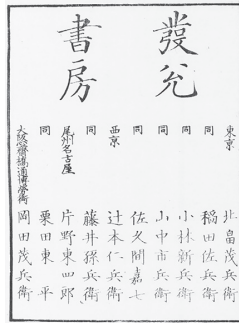 發兌
書房
東京 北畠茂兵衛
同 稲田佐兵衛
同 小林新兵衛
同 山中市兵衛
同 佐久間嘉七
西京 辻本仁兵衛
同 藤井孫兵衛
尾州名古屋 片野東四郎
同 栗田東平
大阪心齋橋通博勞町 岡田茂兵衛